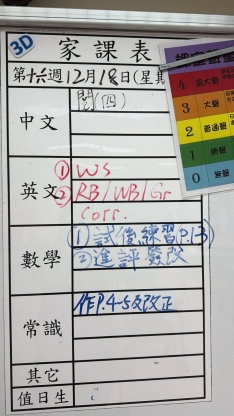 3D
家課表
第十六週12月18日(星期
中文
閱(四)
英文
① WS
② RB/WB/Gr
Corr.
數學
(1)試後練習(P.13)
(2)進評簽改
常識
作P.4-5及改正
其它
值日生
4
3 大聲
2
1
0